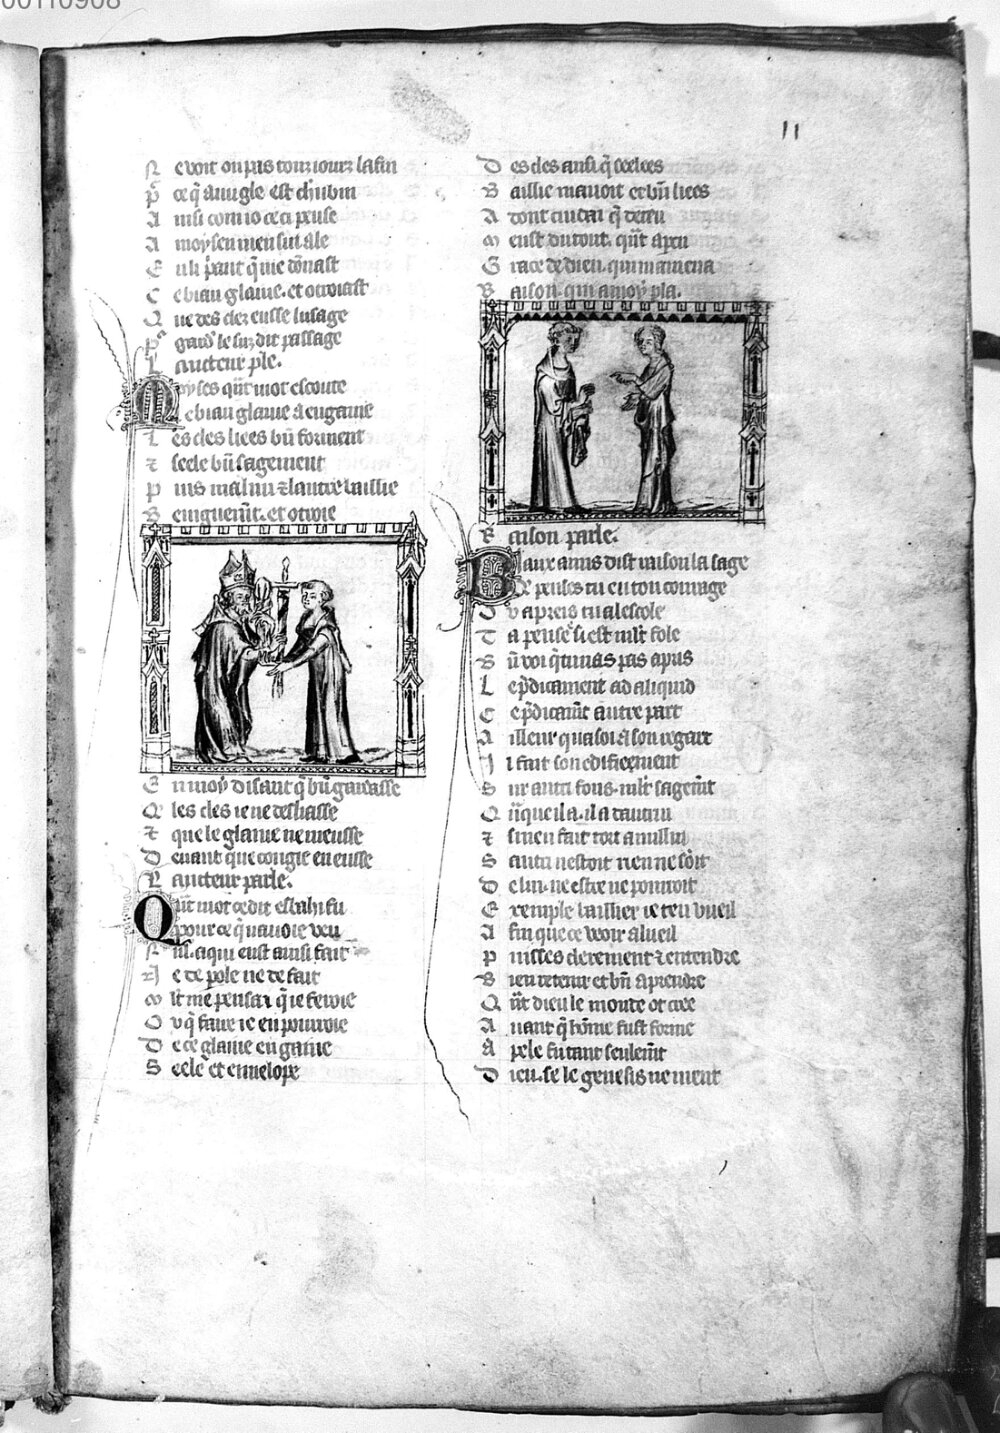 00110908
11
N e voit on pas touz iours la fin
P ce q̄ auugle est ch'ubin
A insi com io ce ci pense
A moysen men sui ale
E n li p̄ant q̄ me dōnast
C e biau glaiue. et otroiast
Q ue des clez eusse lusage
P ᵒ gard' le suz dit passage
L aucteur ple.
M oyses q̄nt mot escoute
C e biau glaiue a engaine
L es cles liees bn̄ forment
⁊ seele bn̄ sagement
P uis mal nu ⁊ lautre laissie
B enignem̄t. et otroie
E n moy disant q̄ bn̄ gardasse
Q les cles ie ne desliasse
⁊ que le glaiue ne meusse
D euant que congie en eusse
L aucteur parle.
Q ūt mot ce dit esbahi fu
pour ce q̄ nauoie veu
N ul. a qui eust ainsi fait
N e de pole ne de fait
M l't me pensai q̄ ie feroie
O u q̄ faire ie en pourroie
D e ce glaiue engaine
S eele et enuelope
D es cles ansi q̄ seelees
B aillie mauoit et bn̄ liees
A dont cuidai q̄ deceu
M eust du tout. q̄nt apceu
G race de dieu. qui mamena
R aison. qui a moy pla.
R aison parle.
B iaux amis dist raison la sage
Q ue penses tu en ton courage
O u apreis tu a lescole
T a pensee si est ml't fole
B n̄ voi q̄ tu nas pas apris
L e p̄dicament ad aliquid
C e p̄dicam̄t autre part
A illeur qua soi a son regart
I l fait son edifiement
S ur autri fons. ml't sagem̄t
Q n̄que il a. il a dautrui
⁊ si nen fait tort a nullui
S autri nestoit rien ne sōit
D e lui. ne estre ne pourroit
E xemple baillier ie ten vueil
A fin que ce veoir a lueil
P uisses clerement ⁊ entendre
B ien retenir et bn̄ aprendre
Q ūt dieu le monde ot cree
A uant q̄ hōme fust forme
A pele fu tant seulem̄t
D ieu. se le genesis ne ment